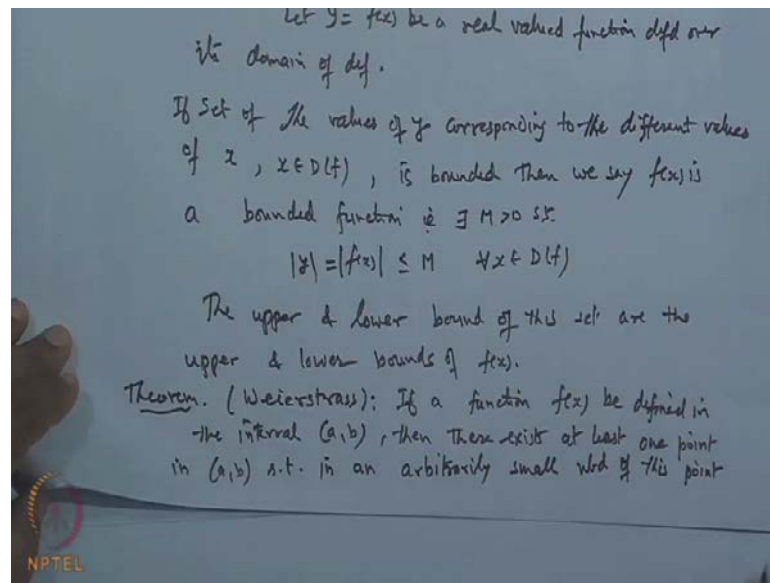 Let y = f(x) be a real valued function defd over
its domain of def.
If Set of the values of y corresponding to the different values
of x, x ∈ D(f), is bounded then we say f(x) is
a bounded function ie ∃ M>0 s.t.
|y| = |f(x)| ≤ M ∀x ∈ D(f)
The upper & lower bound of this set are the
upper & lower bounds of f(x).
Theorem. (Weierstrass): If a function f(x) be defined in
the interval (a,b), then there exists at least one point
in (a,b) s.t. in an arbitrarily small nbd of this point
NPTEL